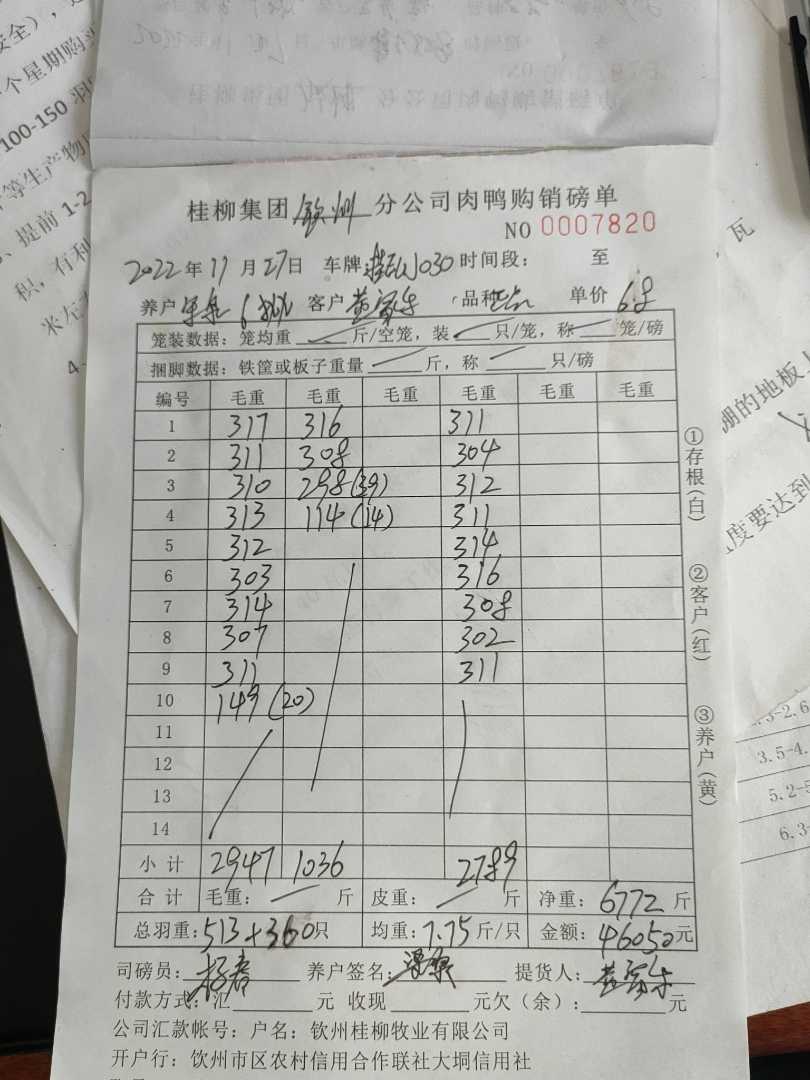 安全),
个星期购
100-150 羽
等生产物
、提前 1-2
积，有利
米左
4
瓦
棚的地板上
度要达到
桂柳集团 钦州 分公司肉鸭购销磅单
NO 0007820
2022 年 11 月 27 日 车牌 030 时间段： 至
养户 客户 品种 单价 6.8
笼装数据：笼均重 斤/空笼，装 只/笼，称 笼/磅
捆脚数据：铁筐或板子重量 斤，称 只/磅
编号 毛重 毛重 毛重 毛重 毛重 毛重
1 317 316 311
2 311 308 304
3 310 298(39) 312
4 313 114(14) 311
5 312 314
6 303 316
7 314 308
8 307 302
9 311 311
10 149(20)
11
12
13
14
小计 2947 1036 2789
合计 毛重： 斤 皮重： 斤 净重：6772 斤
总羽重：513+360只 均重：7.75斤/只 金额：46050元
司磅员： 养户签名： 提货人：
付款方式：汇 元 收现 元欠（余）： 元
公司汇款帐号：户名：钦州桂柳牧业有限公司
开户行：钦州市区农村信用合作联社大垌信用社
①存根(白)
②客户(红)
③养户(黄)
3.5-4.
5.2-5
6.3